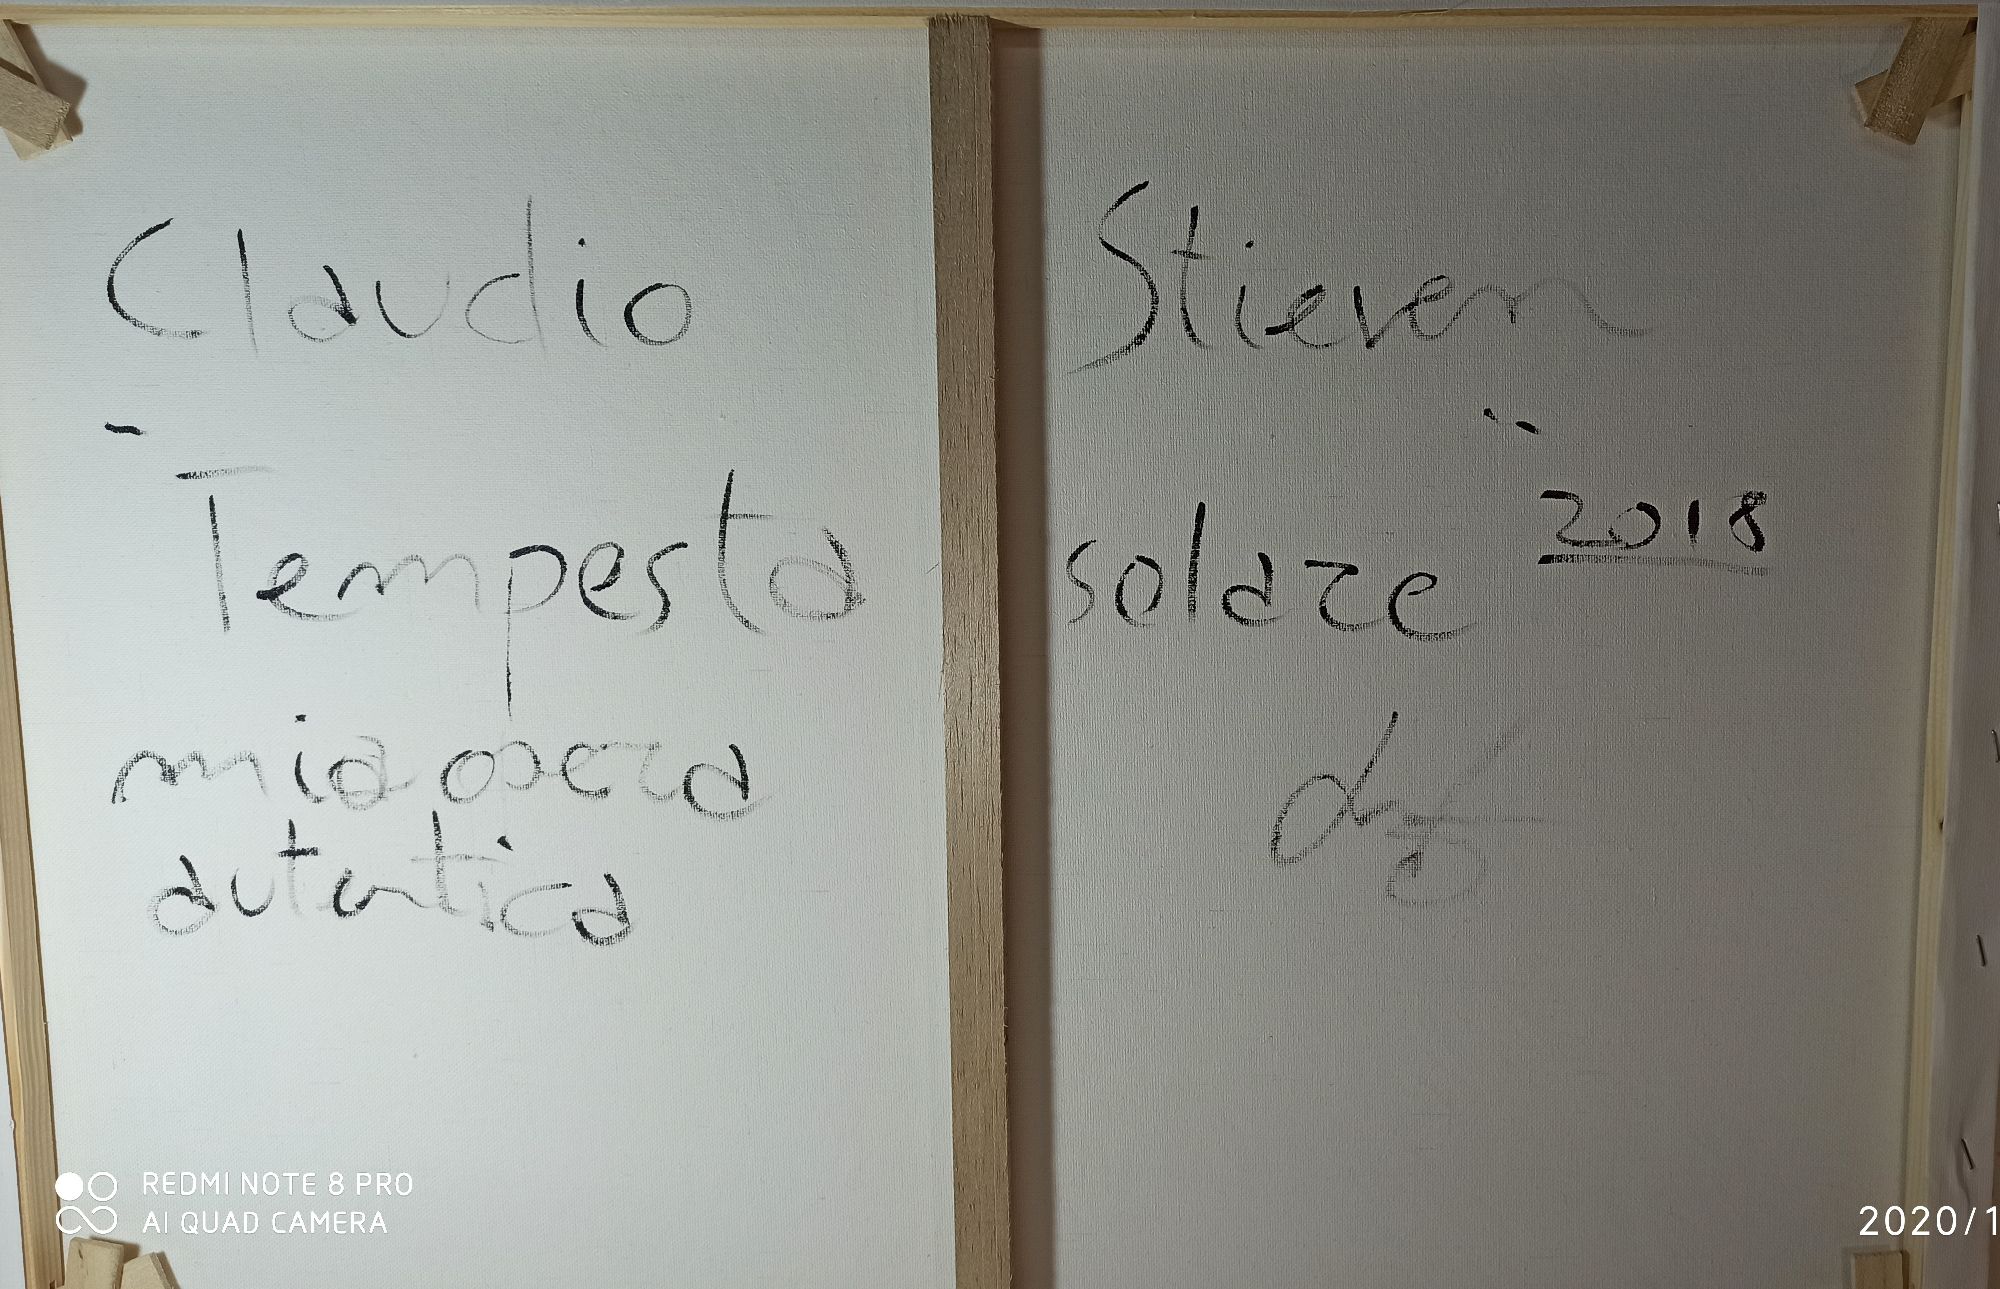 Claudio Stieven
- Tempesta solare" 2018
mia opera
autentica
REDMI NOTE 8 PRO
AI QUAD CAMERA
2020/1